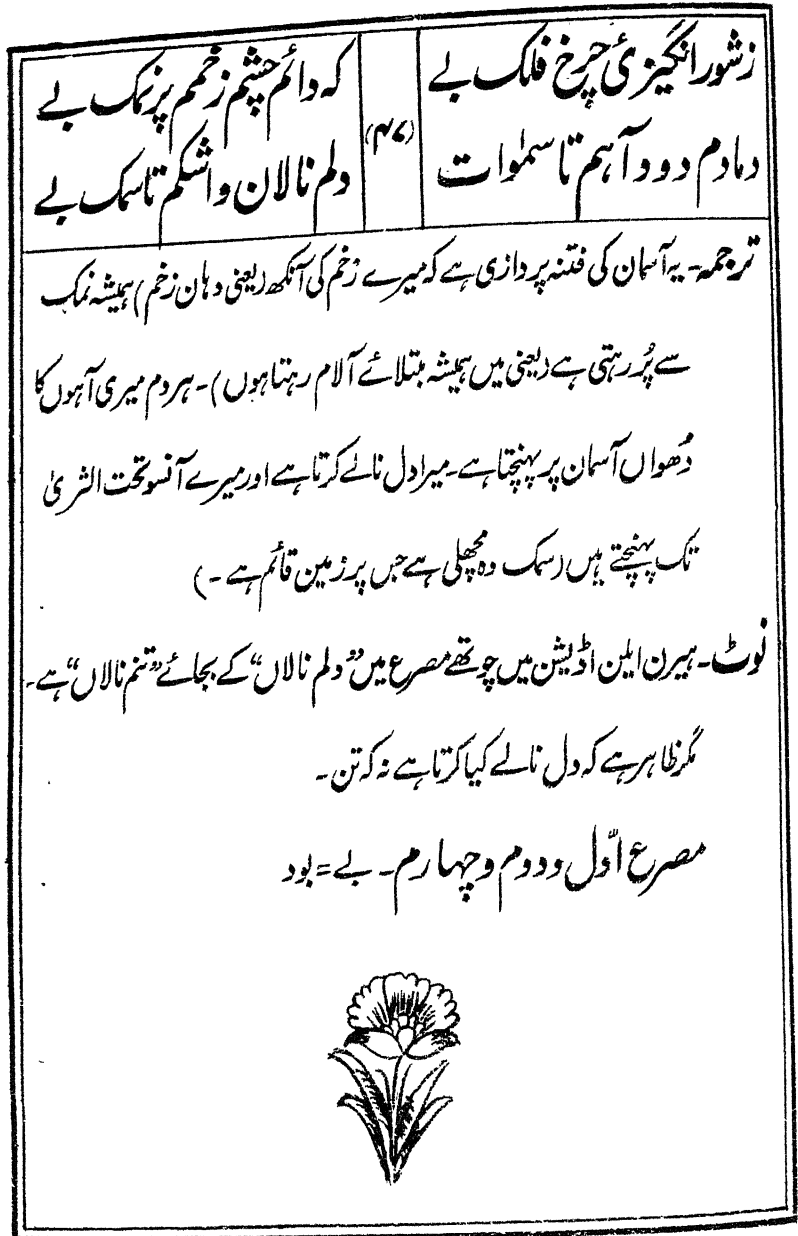 زشور انگیزیٔ چرخ فلک بے
که دائم چشم زخمم پر نمک بے
(۴۷)
دمادم دود آہم تا سمٰوات
دلم نالان و اشکم تا سمک بے
ترجمہ۔ یہ آسمان کی فتنہ پردازی ہے کہ میرے زخم کی آنکھ (یعنی دہان زخم) ہمیشہ نمک
سے پُر رہتی ہے (یعنی میں ہمیشہ مبتلائے آلام رہتا ہوں)۔ ہر دم میری آہوں کا
دُھواں آسمان پر پہنچتا ہے۔ میرا دل نالے کرتا ہے اور میرے آنسو تحت الثریٰ
تک پہنچتے ہیں (سمک وہ مچھلی ہے جس پر زمین قائم ہے۔)
نوٹ۔ ہیرن ایلن اڈیشن میں چوتھے مصرع میں ”دلم نالاں“ کے بجائے ”تنم نالاں“ ہے۔
مگر ظاہر ہے کہ دل نالے کیا کرتا ہے نہ کہ تن۔
مصرع اوّل و دوم و چہارم۔ بے = بود